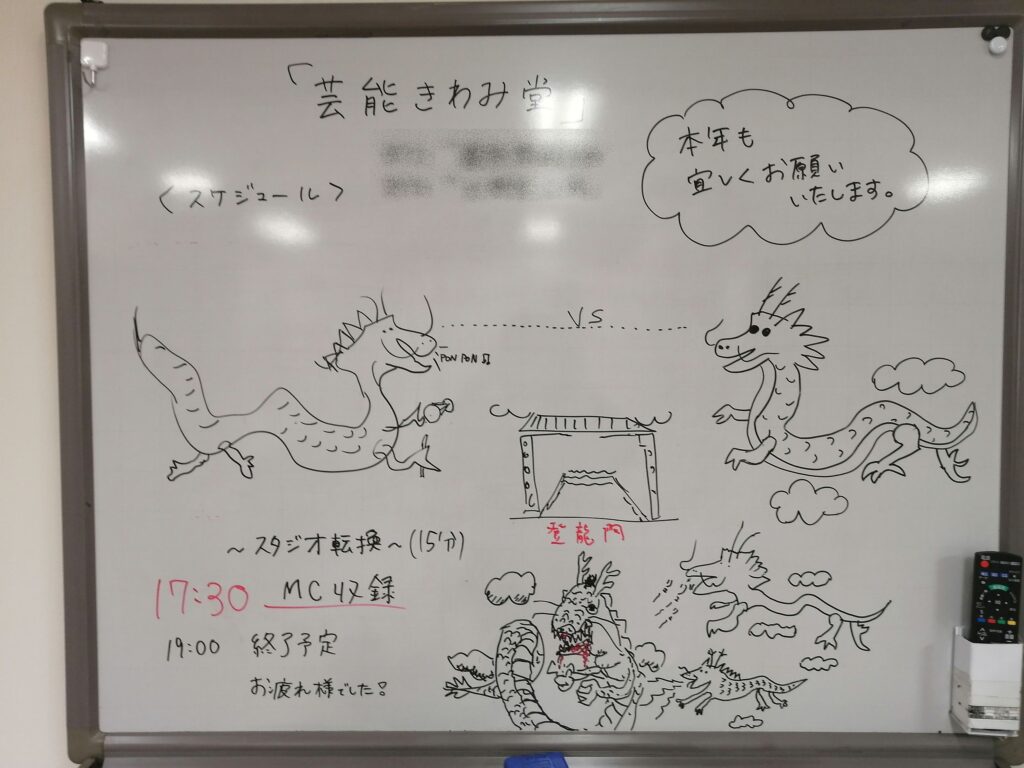 「芸能きわみ堂」
本年も
宜しくお願い
いたします。
〈スケジュール〉
VS
PON PON
登龍門
～スタジオ転換～(15分)
17:30 MC収録
19:00 終了予定
お疲れ様でした。